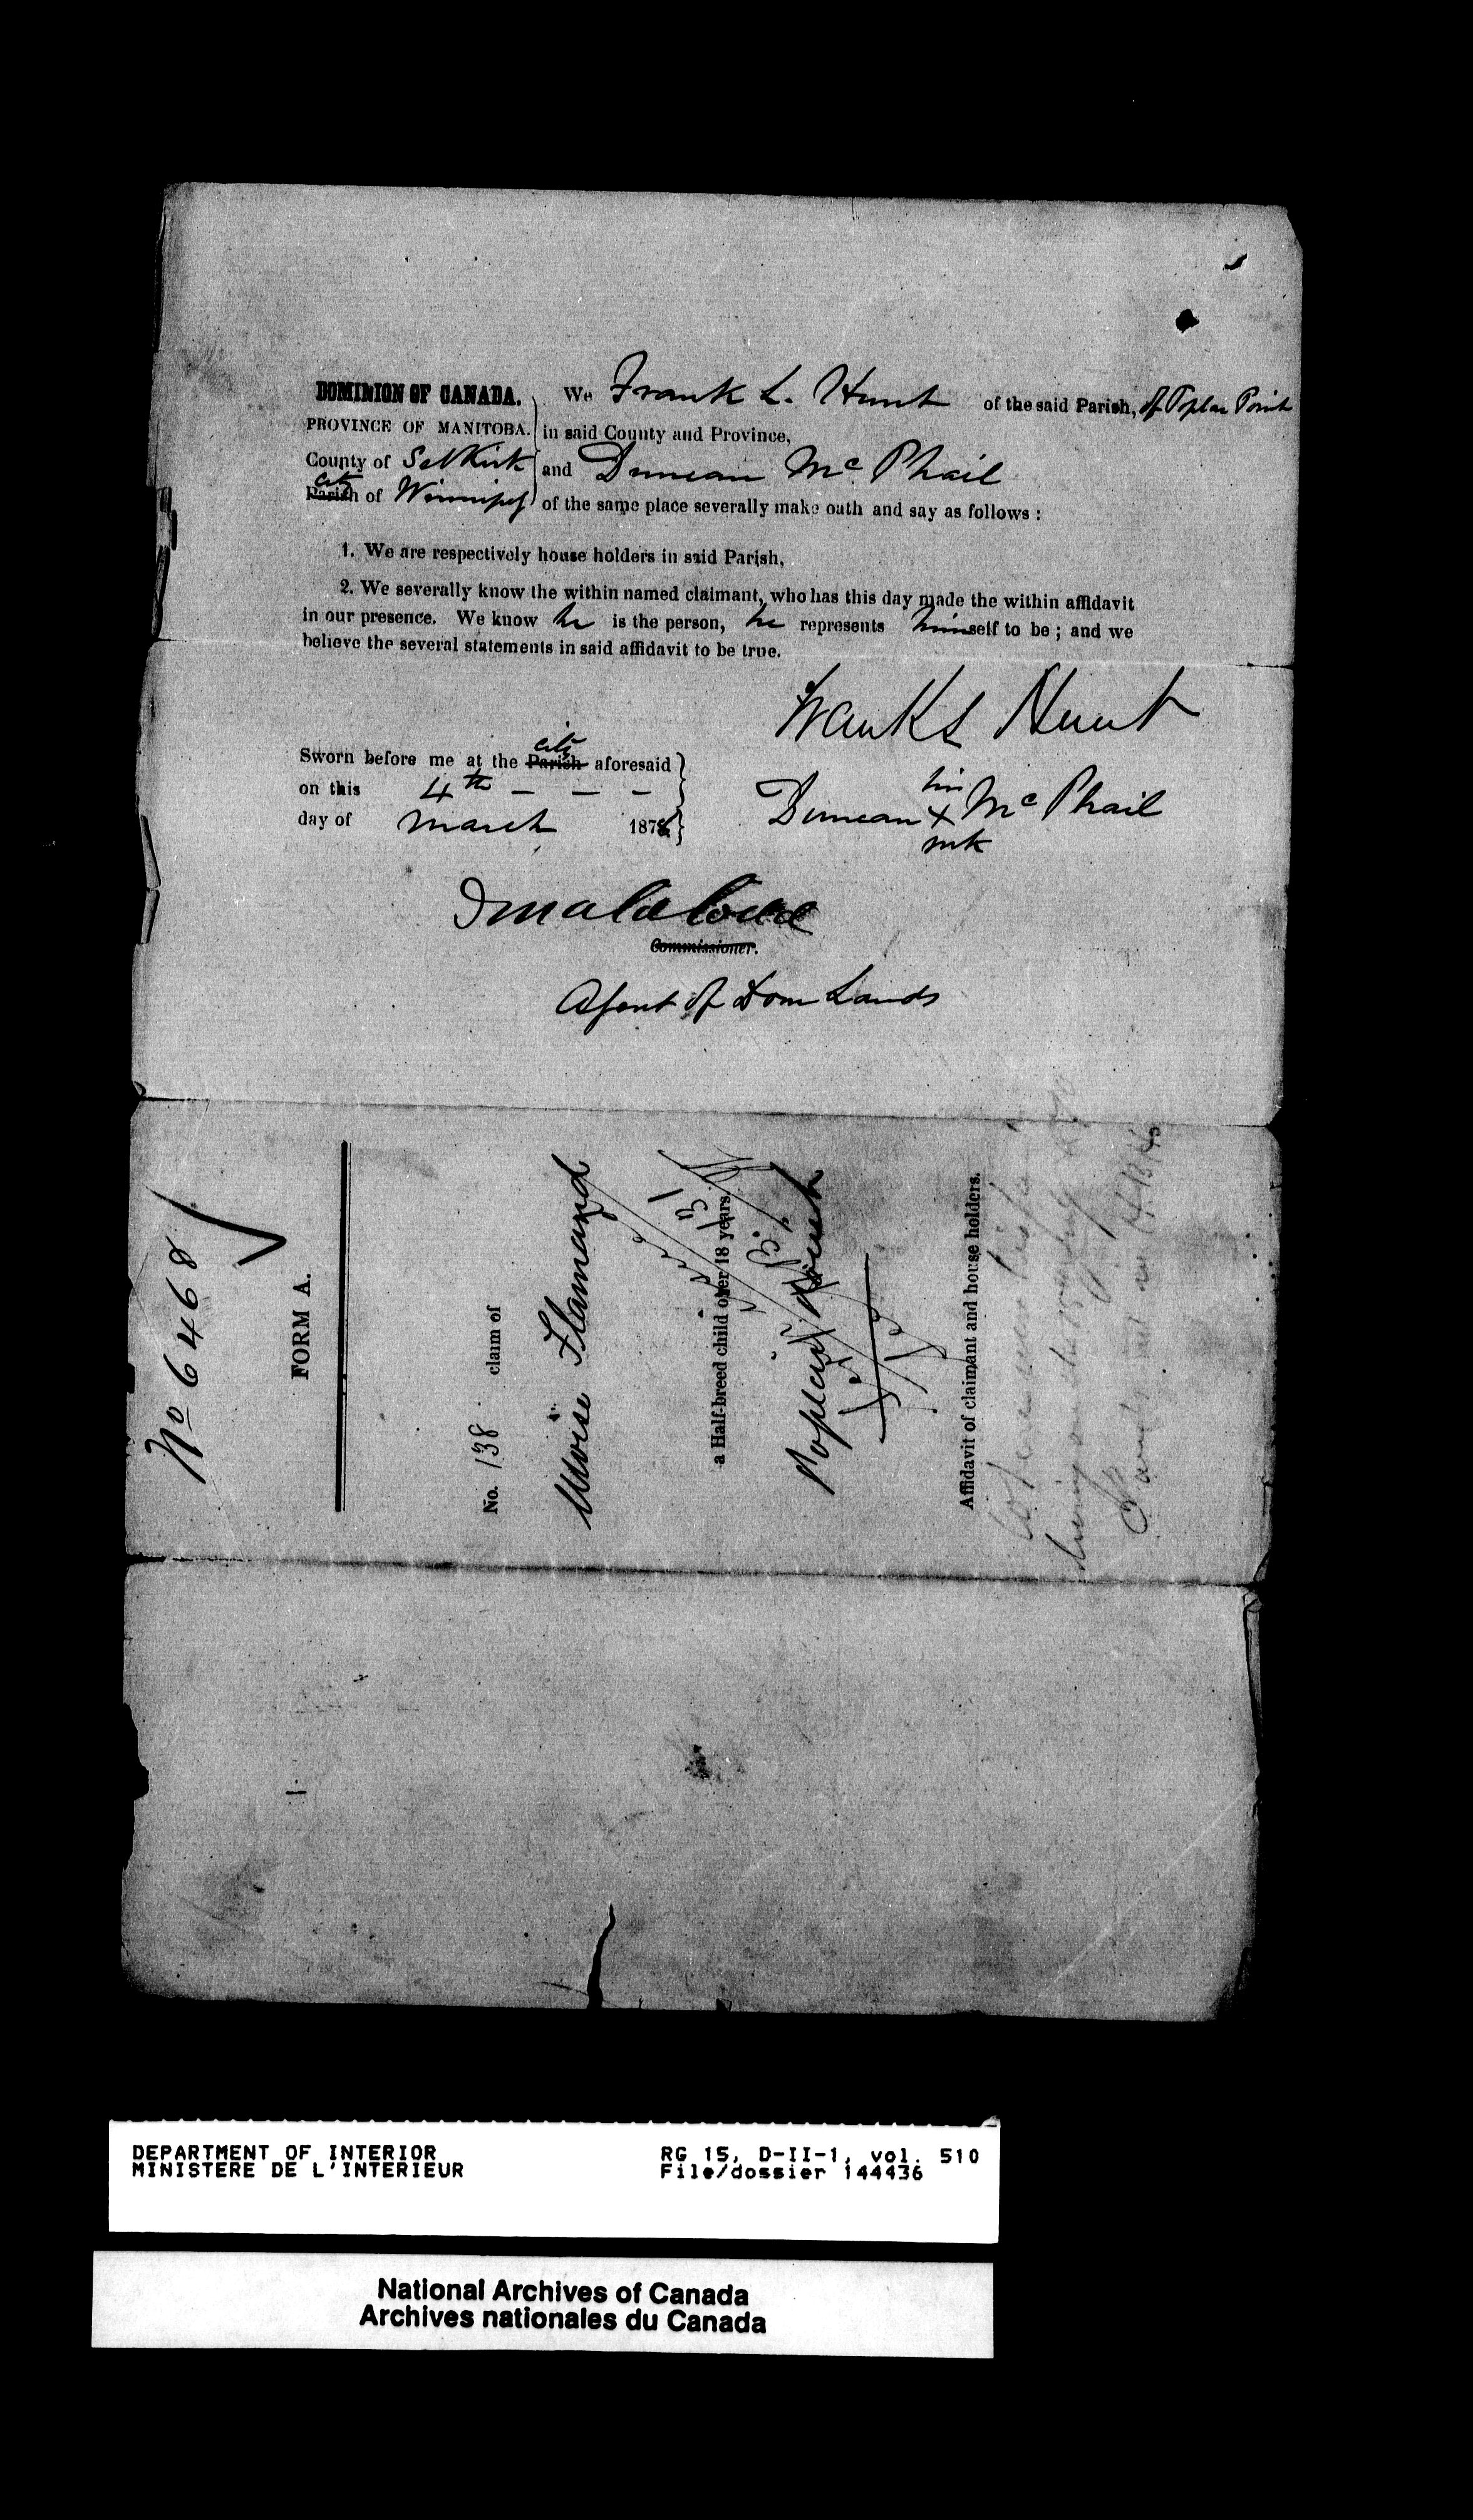 DOMINION OF CANADA.
PROVINCE OF MANITOBA.
County of Selkirk
city
Parish of Winnipeg
We Frank L. Hunt of the said Parish, of Poplar Point
in said County and Province,
and Duncan McPhail
of the same place severally make oath and say as follows :
1. We are respectively house holders in said Parish,
2. We severally know the within named claimant, who has this day made the within affidavit
in our presence. We know he is the person, he represents himself to be ; and we
believe the several statements in said affidavit to be true.
Frank L Hunt
city
Sworn before me at the Parish aforesaid
on this 4th — — —
day of March 187
his
Duncan X McPhail
mk
Commissioner.
Agent of Dom Lands
No 6468
FORM A.
No. 138 claim of
Moise Flamand
a Half-breed child over 18 years.
Poplar Point
Affidavit of claimant and house holders.
DEPARTMENT OF INTERIOR
MINISTERE DE L'INTERIEUR
RG 15, D-II-1, vol. 510
File/dossier 144436
National Archives of Canada
Archives nationales du Canada